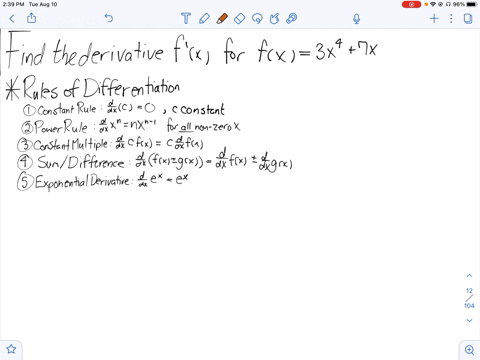 2:39 PM Tue Aug 10
96%
Find the derivative f'(x) for f(x) = 3x⁴ + 7x
* Rules of Differentiation
① Constant Rule: d/dx (c) = 0, c constant
② Power Rule: d/dx xⁿ = nxⁿ⁻¹ for all non-zero x
③ Constant Multiple: d/dx c f(x) = c d/dx f(x)
④ Sum/Difference: d/dx (f(x) ± g(x)) = d/dx f(x) ± d/dx g(x)
⑤ Exponential Derivative: d/dx eˣ = eˣ
12
/
104